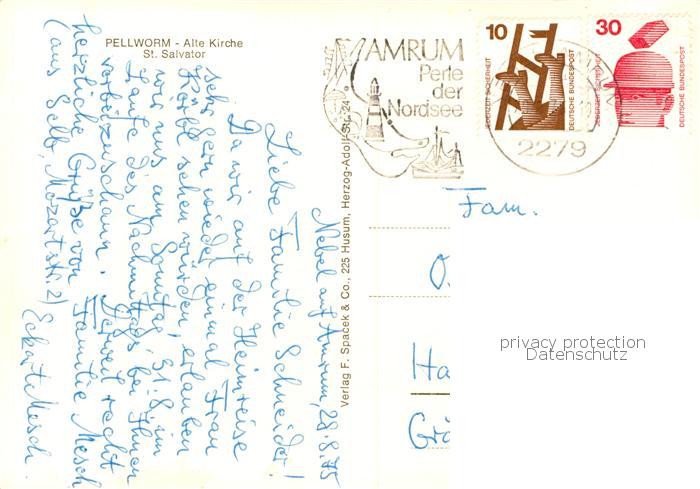 PELLWORM - Alte Kirche
St. Salvator
AMRUM
Perle
der
Nordsee
2279
10
JEDERZEIT SICHERHEIT
DEUTSCHE BUNDESPOST
30
JEDERZEIT SICHERHEIT
DEUTSCHE BUNDESPOST
Verlag F. Spacek & Co., 225 Husum, Herzog-Adolf-Str. 24
Nebel auf Amrum, 28.8.75
Liebe Familie Schneider!
Da wir auf der Heimreise
sehr gern wieder einmal Frau
Röhl sehen würden, erlauben
wir uns am Sonntag, 31.8. im
Laufe des Nachmittags bei Ihnen
vorbeizuschauen. Derweil recht
herzliche Grüße von Familie Mesch
(aus Selb, Mozartstr. 2) Eckart Mesch.
Fam.
O.
Ha
Grä
privacy protection
Datenschutz